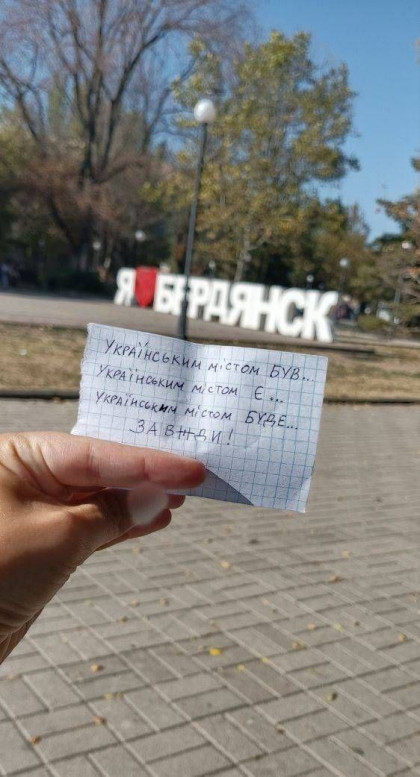 Я БЕРДЯНСК
УКРАЇНСЬКИМ МІСТОМ БУВ...
УКРАЇНСЬКИМ МІСТОМ Є...
УКРАЇНСЬКИМ МІСТОМ БУДЕ...
ЗАВЖДИ!